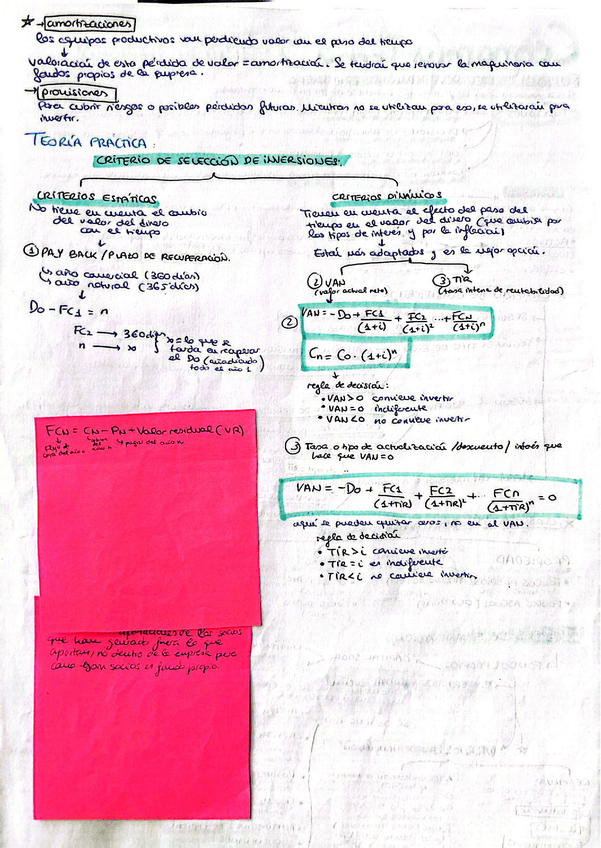 * → amortizaciones
los equipos productivos van perdiendo valor con el paso del tiempo
valoración de esta pérdida de valor = amortización. Se tendrá que renovar la maquinaria con
fondos propios de la empresa.
→ provisiones
Para cubrir riesgos o posibles pérdidas futuras. Mientras no se utilizan para eso, se utilizarán para
invertir.
TEORÍA PRÁCTICA:
CRITERIO DE SELECCIÓN DE INVERSIONES:
CRITERIOS ESTÁTICOS
No tiene en cuenta el cambio
del valor del dinero
con el tiempo
① PAY BACK / PLAZO DE RECUPERACIÓN.
↳ año comercial (360 días)
↳ año natural (365 días)
Do - FC1 = n
FC2 → 360 días
n → x
x = lo que se
tarda en recuperar
el Do (añadiendo
todo el año 1
CRITERIOS DINÁMICOS
Tienen en cuenta el efecto del paso del
tiempo en el valor del dinero (que cambia por
los tipos de interés y por la inflación)
Están más adaptados y es la mejor opción.
② VAN
(valor actual neto)
③ TIR
(tasa interna de rentabilidad)
② VAN = -Do + FC1/(1+i) + FC2/(1+i)² ...+ FCn/(1+i)ⁿ
Cn = Co · (1+i)ⁿ
regla de decisión:
• VAN>0 conviene invertir
• VAN=0 indiferente
• VAN<0 no conviene invertir
③ Tasa o tipo de actualización /descuento/ interés que
hace que VAN=0
VAN = -Do + FC1/(1+TIR) + FC2/(1+TIR)² + ... FCn/(1+TIR)ⁿ = 0
aquí se pueden quitar ceros, no en el VAN.
regla de decisión
• TIR > i conviene invertir
• TIR = i es indiferente
• TIR < i no conviene invertir
FCN = CN - PN + Valor residual (VR)
Flujo de
caja del año n
↳ pagos del año n
aportaciones de los socios
que han generado fuera lo que
aportan, no dentro de la empresa pero
como son socios es fondo propio.